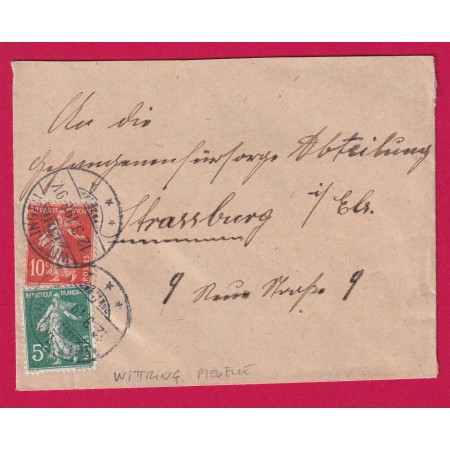 An die
Gefangenenfürsorge Abteilung
Strassburg i/Els.
9 Neue Straße 9
10c POSTES
REPUBLIQUE FRANÇAISE
5c POSTES
WITTRING, MOSELLE